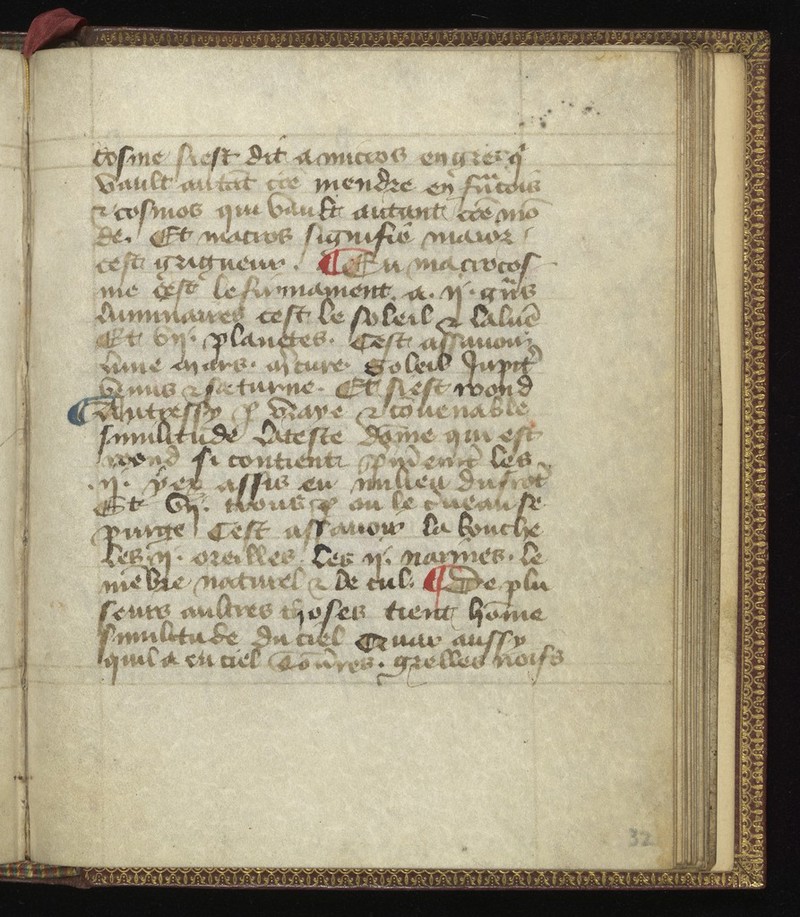 cosme siest dit a micros en gresq̃
vault autãt cõe mendre en frãcois
⁊ cosmos qui vault autant cõe mõ
de. Et macros signifie maior
cest grigneur. ¶ En macrocos
me cest le firmament a .ij. grãs
luminaires cest le soleil ⁊ la lune
Et vij. planetes. Cest assauoir
lune mars. m̃cure. Soleil Jupit̃
venus ⁊ saturne. Et siest rond
¶ Autressy p vraye ⁊ couenable
similitude la teste dõme qui est
rond si contient les
.ij. yex assis en milieu du frõt
Et vij. trous p ou le c̃ueau se
purge Cest assauoir la bouche
les .ij. oreilles les ij. narines. le
mẽbre naturel ⁊ le cul. ¶ De plu
seurs aultres choses tient hõme
similitude du ciel Quar aussy
quil a en ciel toñres. grelles noifs
32